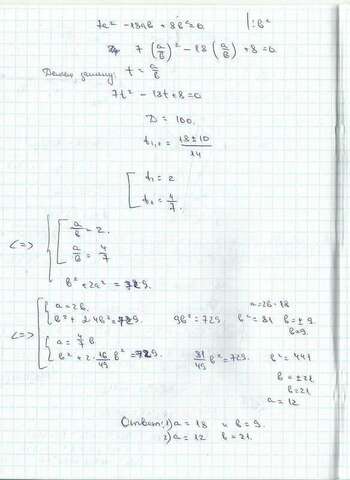 7a² - 18ab + 8b² = 0 | : b²
7 (a/b)² - 18 (a/b) + 8 = 0
Делаем замену: t = a/b
7t² - 18t + 8 = 0
D = 100.
t₁,₂ = (18 ± 10)/14
[ t₁ = 2
t₂ = 4/7.
<=> { [ a/b = 2.
a/b = 4/7
b² + 2a² = 729.
<=> [ { a = 2b. a = 2b = 18
b² + 2·4b² = 729. 9b² = 729. b² = 81 b = ± 9.
b = 9.
{ a = 4/7 b
b² + 2·16/49 b² = 729. 81/49 b² = 729. b² = 441
b = ± 21
b = 21
a = 12
Ответ: 1) a = 18 и b = 9.
2) a = 12 b = 21.